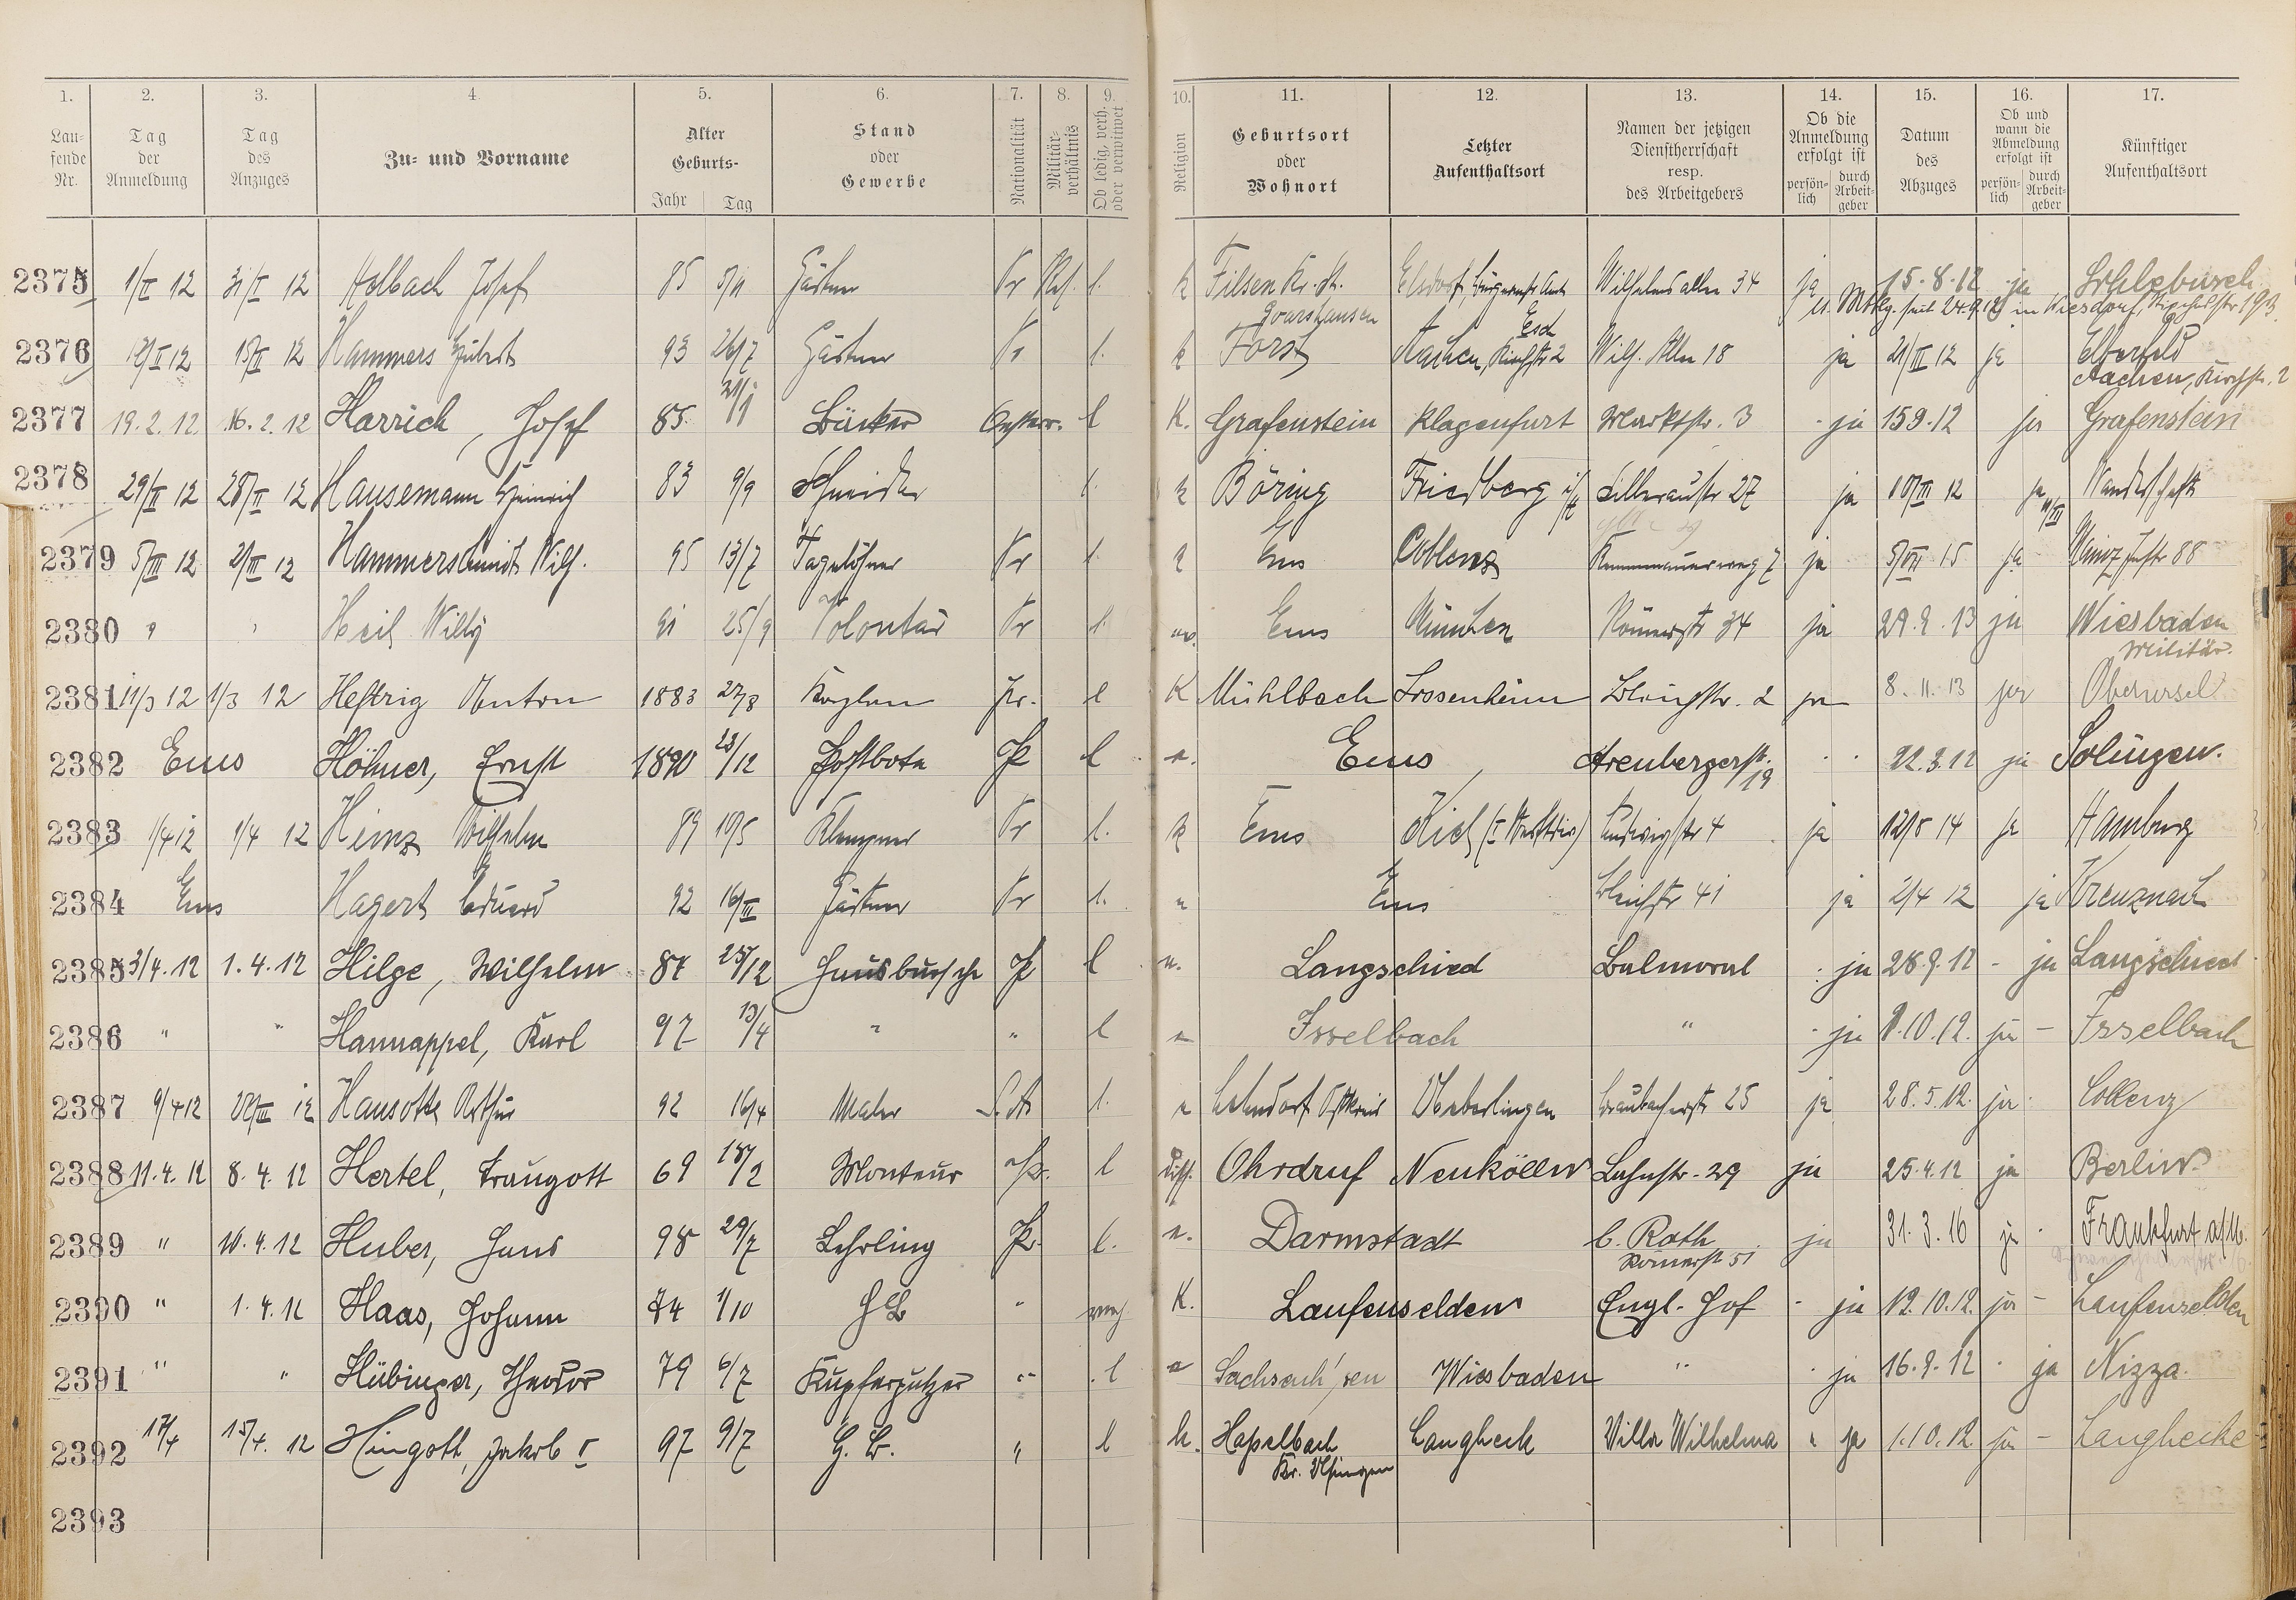 1. 2. 3. 4. 5. 6. 7. 8. 9. 10. 11. 12. 13. 14. 15. 16. 17.
Laufende Nr. | Tag der Anmeldung | Tag des Anzuges | Zu- und Vorname | Alter Geburts- Jahr Tag | Stand oder Gewerbe | Nationalität | Militärverhältnis | Ob ledig, verh. oder verwitwet | Religion | Geburtsort oder Wohnort | Letzter Aufenthaltsort | Namen der jetzigen Dienstherrschaft resp. des Arbeitgebers | Ob die Anmeldung erfolgt ist persönlich durch Arbeitgeber | Datum des Abzuges | Ob und wann die Abmeldung erfolgt ist persönlich durch Arbeitgeber | Künftiger Aufenthaltsort
2375 1/II 12 31/I 12 Holbach Josef 85 Gärtner Pr l. k Filsen Kr. St. Elsdorf Wilhelmsallee 34 ja 15.8.12 ja Schlebusch
Goarshausen Esch in Wiesdorf
2376 12 15/II 12 Hammers Hubert 93 26/7 Gärtner Pr l. k Forst Aachen, Kirchstr 2 Wilh. Allee 18 ja 21/III 12 ja Elberfeld
Aachen, Kirchstr. 2
2377 19.2.12 16.2.12 Harrich, Josef 85 Bäcker Oesterr. l K. Grafenstein Klagenfurt Marktstr. 3 ja 15 9.12 ja Grafenstein
2378 29/II 12 28/II 12 Hausemann Heinrich 83 9/9 Schneider l. k Böring Friedberg Silberaustr 27 ja 10/III 12 ja Wanderschaft
2379 5/III 12 2/III 12 Hammerschmidt Wilh. 95 13/7 Tagelöhner Pr l. Ems Coblenz Kemmenauerweg 7 ja 5/VII 15 ja 88
2380 " " Heil Willy 91 25/9 Volontär Pr l. ev. Ems München Römerstr 34 ja 29.9.13 ja Wiesbaden
Militär.
2381 11/3 12 1/3 12 Heftrig Anton 1883 27/8 Pr. l K Mühlbach Sossenheim Bleichstr. 2 ja 8.11.13 ja Oberursel
2382 Ems Höhner, Ernst 1890 23/12 Postbote Pr l e. Ems, Arenbergerstr. 19 22.3.12 ja Solingen.
2383 1/4 12 1/4 12 Heinz Wilhelm 89 10/5 Klempner Pr l. k Ems Kiel Ludwigstr 4 ja 14 ja Hamburg
2384 Ems Hagert Eduard 92 16/III Gärtner Pr l. Ems Bleichstr 41 ja 2/4 12 ja Kreuznach
2385 3/4.12 1.4.12 Hilge, Wilhelm 87 25/12 Hausbursche Pr l e. Langschied Balmoral ja 28.9.12 - ja Langschied
2386 " " Hannappel, Karl 97 13/4 " " l Isselbach " ja 8.10.12. ja - Isselbach
2387 9/4 12 12 Hansotte Arthur 92 16/4 Maler l. Überlingen Braubacherstr 25 ja 28.5.12. ja Coblenz
2388 11.4.12 8.4.12 Hertel, Traugott 69 18/2 Monteur Pr. l diss. Ohrdruf Neukölln Lahnstr. 29 ja 25.4.12 ja Berlin
2389 " 10.4.12 Huber, Hans 98 29/7 Lehrling Pr. l. e. Darmstadt C. Roth ja 31.3.16 ja Frankfurt a/M.
Römerstr 51
2390 " 1.4.12 Haas, Johann 74 1/10 " verh K. Laufenselden Engl. Hof - ja 12.10.12. ja - Laufenselden
2391 " " Hübinger, Theodor 79 6/7 Kupferputzer " l Wiesbaden " ja 16.9.12 ja Nizza.
2392 17/4 15/4. 12 Hingott, Jakob I 97 9/7 H. B. " l k. Haselbach Langheck Villa Wilhelma " ja 1.10.12 ja - Langhecke
Kr. Usingen
2393